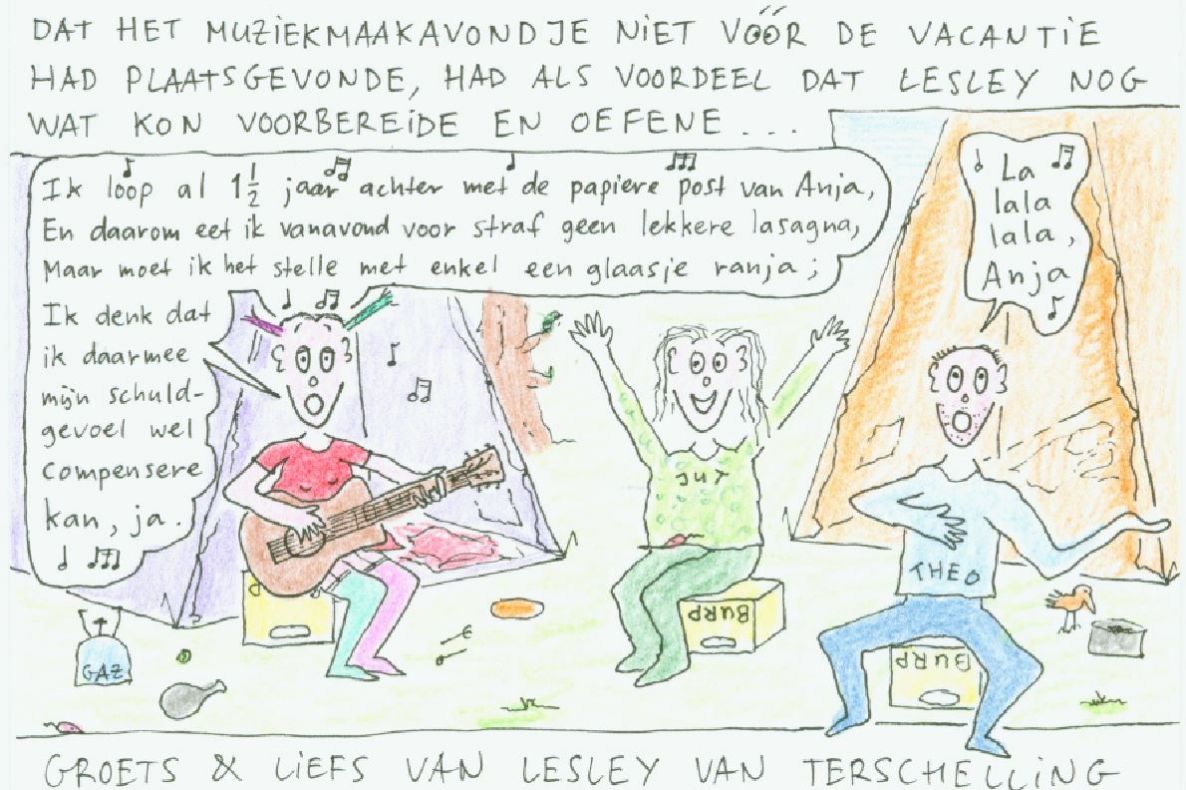 DAT HET MUZIEKMAAKAVONDJE NIET VÓÓR DE VACANTIE
HAD PLAATSGEVONDE, HAD ALS VOORDEEL DAT LESLEY NOG
WAT KON VOORBEREIDE EN OEFENE...
Ik loop al 1½ jaar achter met de papiere post van Anja,
En daarom eet ik vanavond voor straf geen lekkere lasagna,
Maar moet ik het stelle met enkel een glaasje ranja;
Ik denk dat
ik daarmee
mijn schuld-
gevoel wel
compensere
kan, ja.
La
lala
lala,
Anja
JUT
THEO
BURP
BURP
GAZ
GROETS & LIEFS VAN LESLEY VAN TERSCHELLING